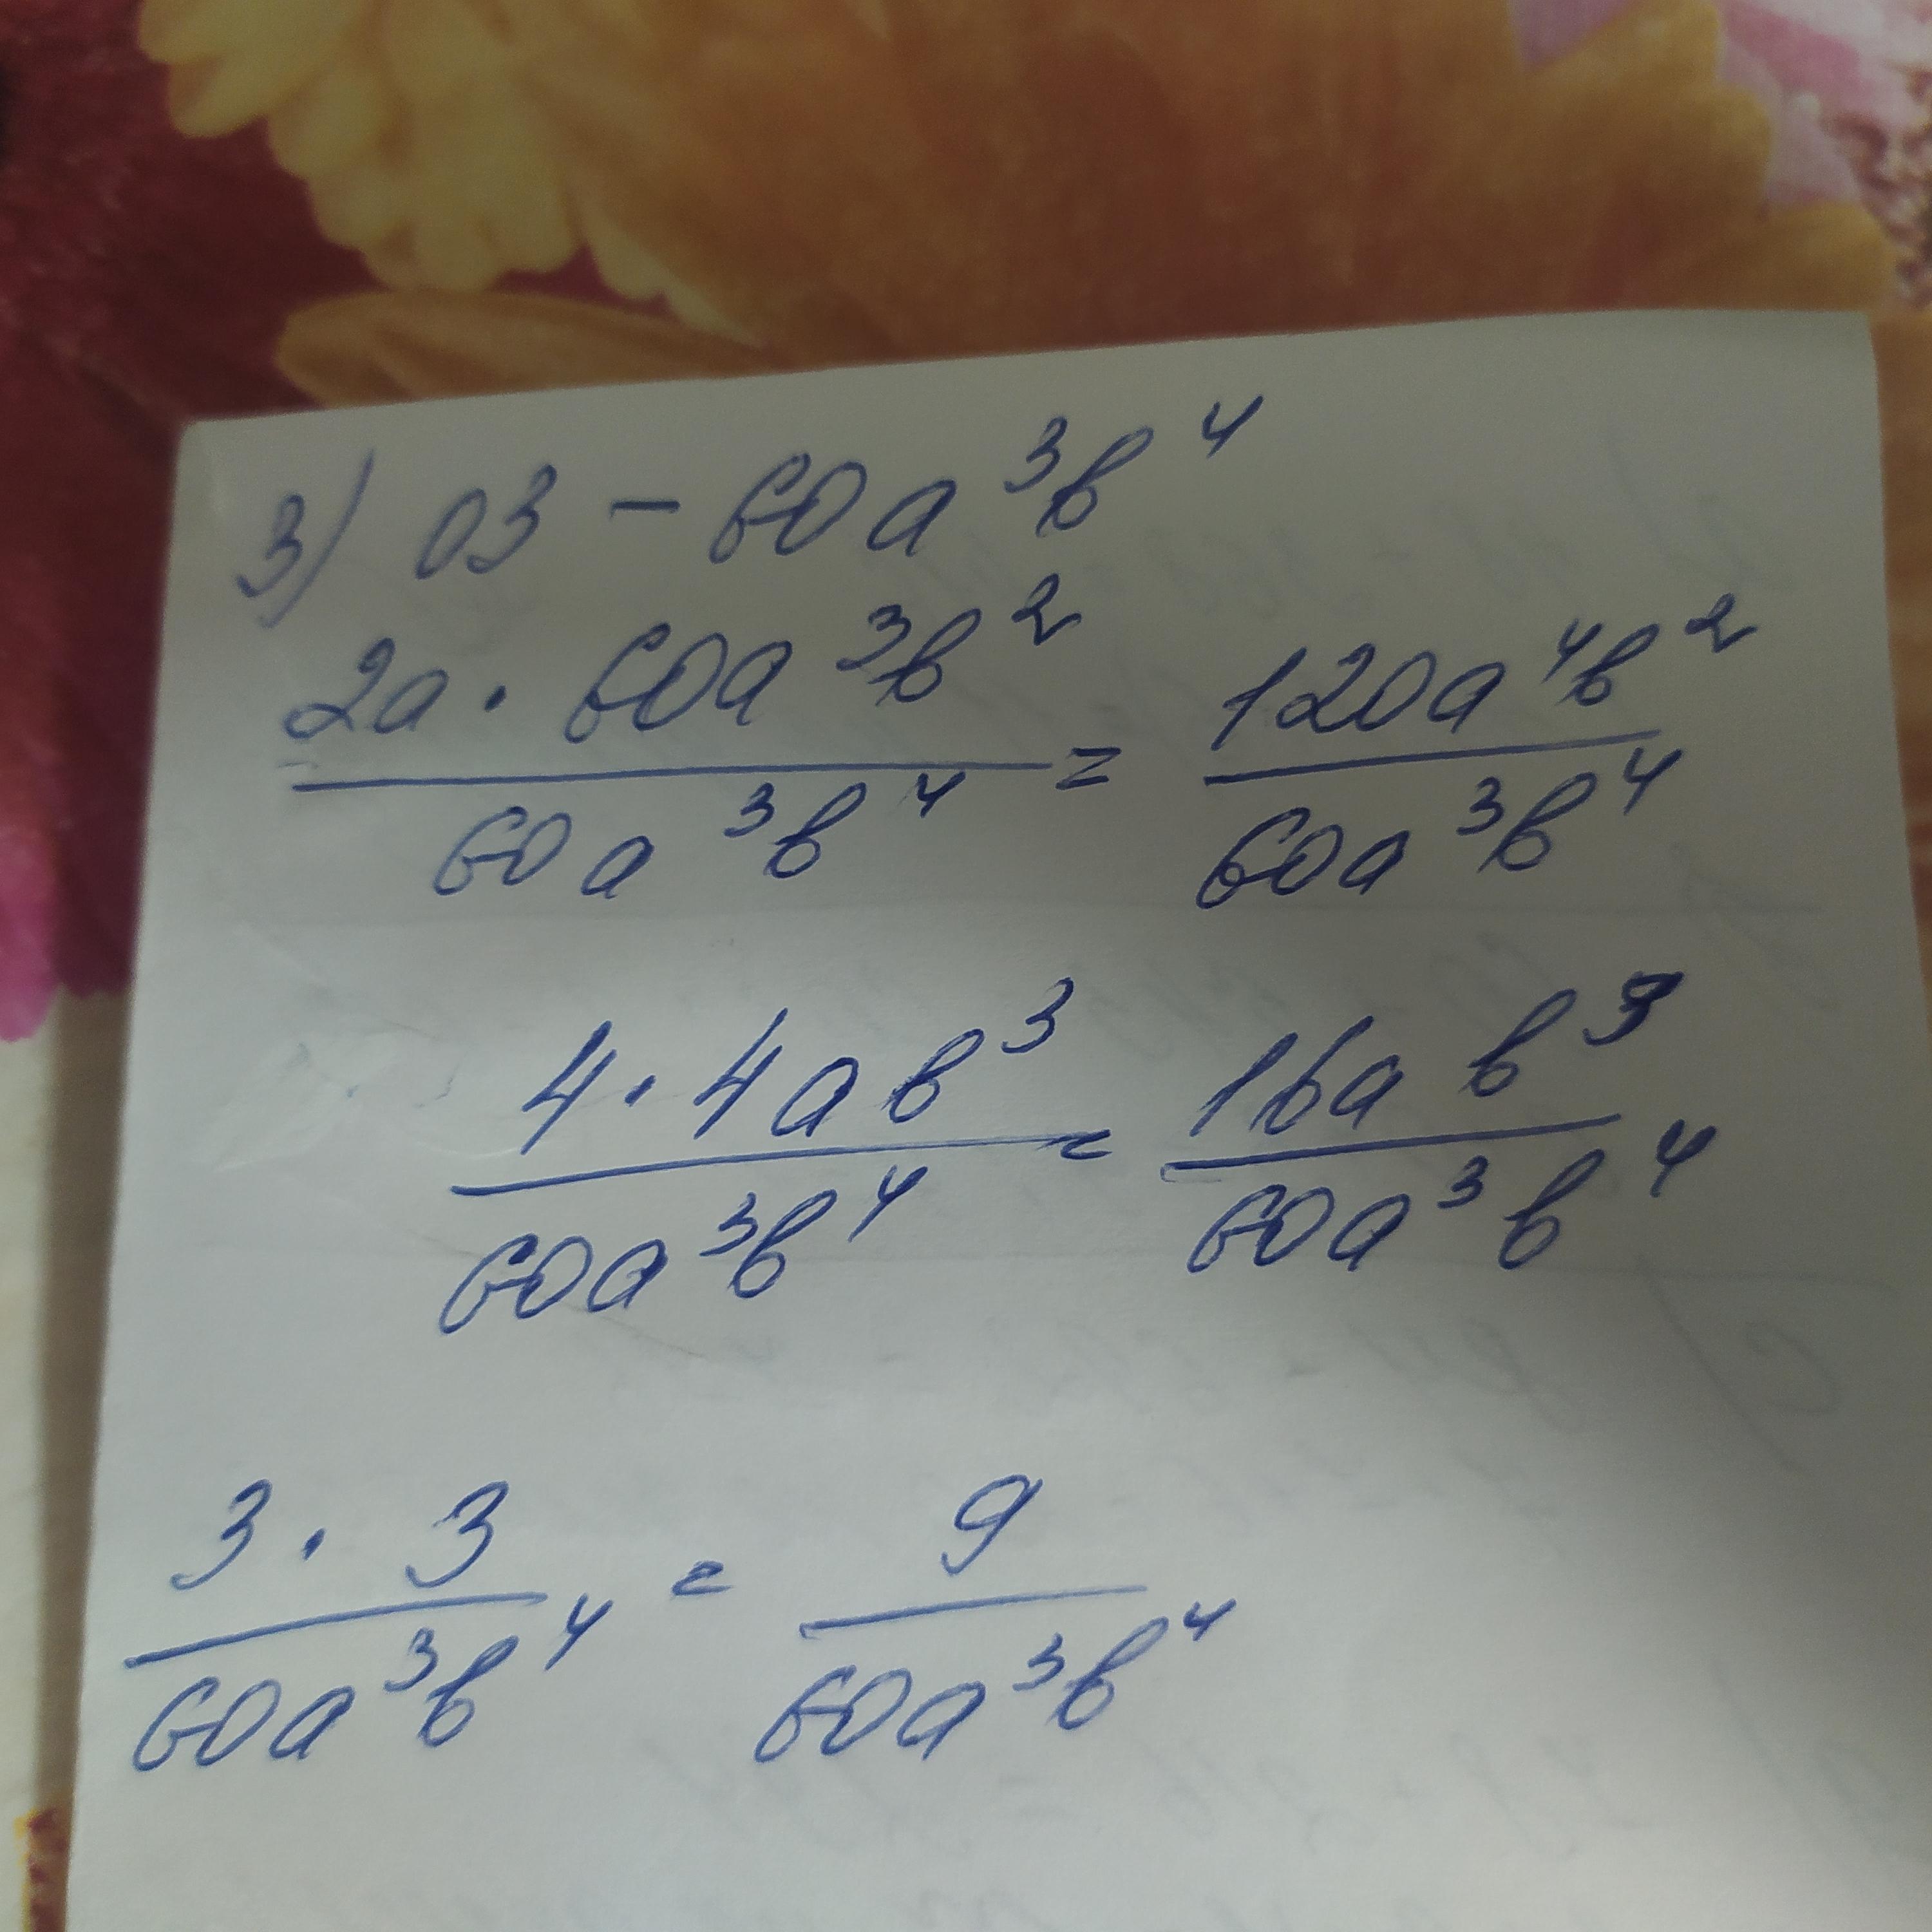 3) ОЗ - 60a³b⁴
2a · 60a³b² / 60a³b⁴ = 120a⁴b² / 60a³b⁴
4 · 4ab³ / 60a³b⁴ = 16ab³ / 60a³b⁴
3 · 3 / 60a³b⁴ = 9 / 60a³b⁴